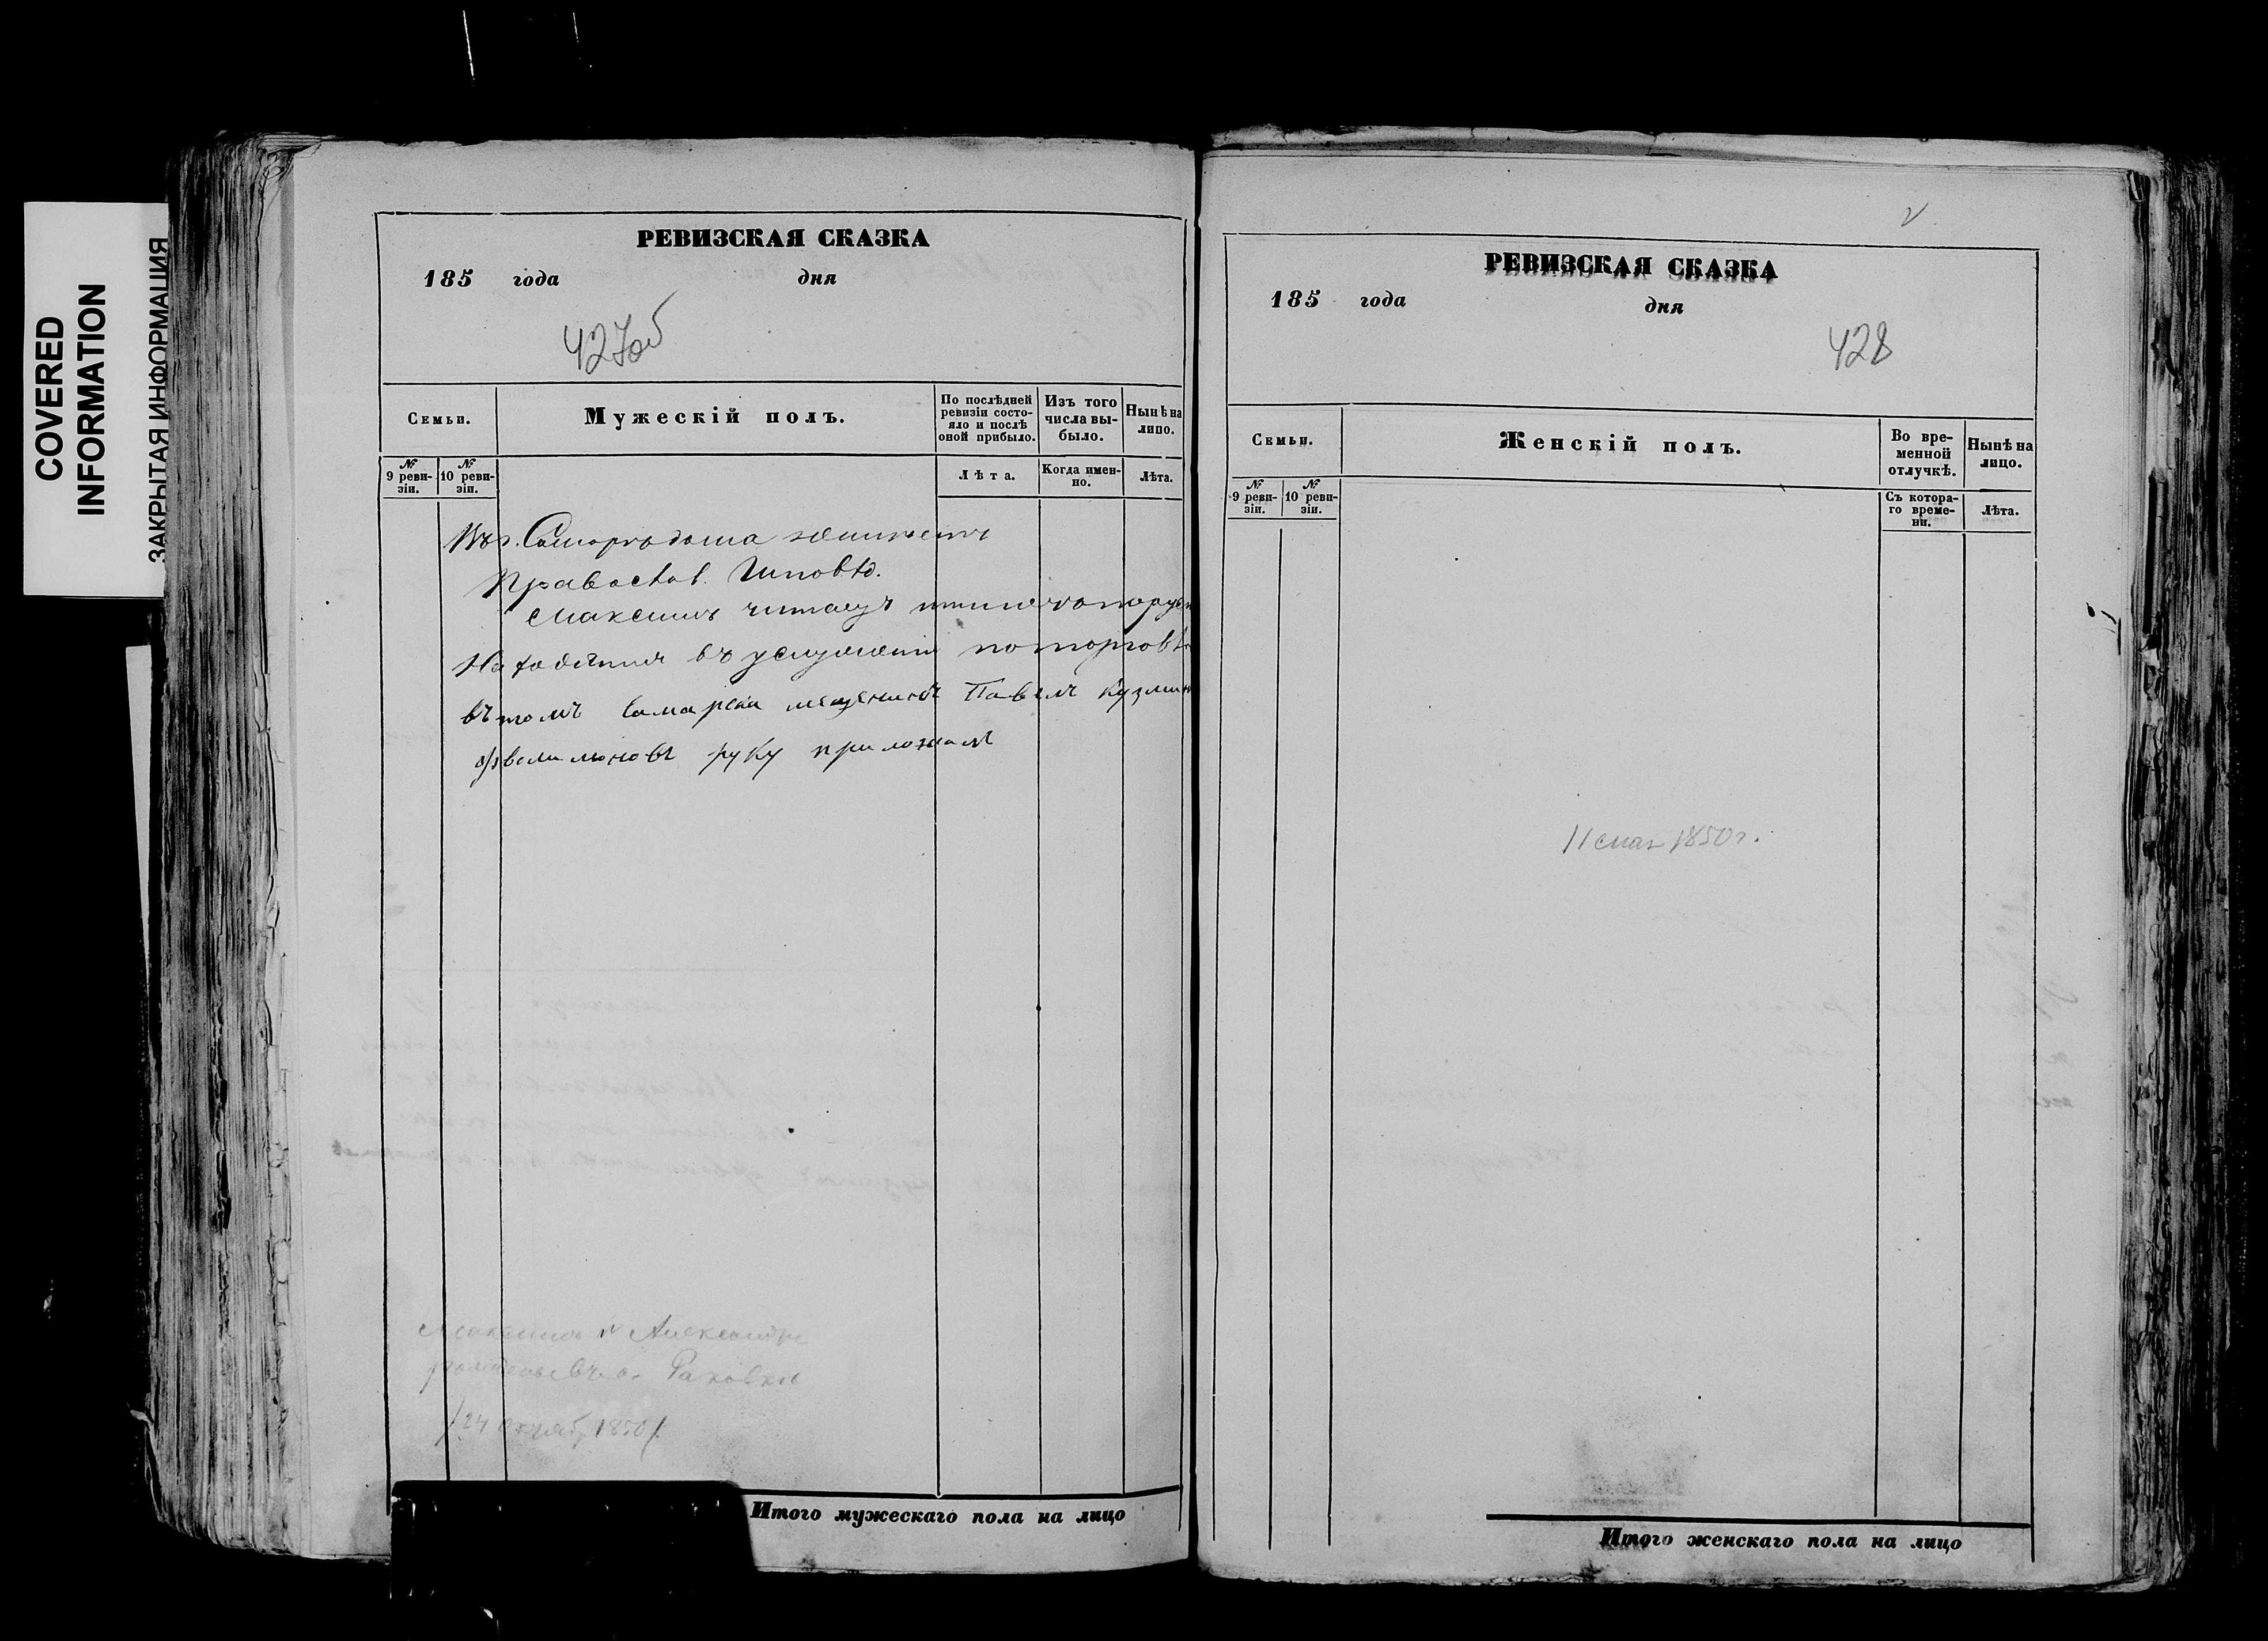 COVERED
INFORMATION
ЗАКРЫТАЯ ИНФОРМАЦИЯ
РЕВИЗСКАЯ СКАЗКА
185 года дня
427об
Семьи.
Мужескій полъ.
По послѣдней ревизіи состояло и послѣ оной прибыло.
Изъ того числа выбыло.
Нынѣ на лицо.
№ 9 ревизіи.
№ 10 ревизіи.
Лѣта.
Когда именно.
Лѣта.
Въ г.
Православ. Исповѣд.
Максимъ читать
въ услуженіи по торговл
въ томъ Самарскій мещенинъ Павелъ Кузмин
руку приложилъ
Максимъ и Александръ
24 1850
Итого мужескаго пола на лицо
РЕВИЗСКАЯ СКАЗКА
185 года дня
428
Семьи.
Женскій полъ.
Во временной отлучкѣ.
Нынѣ на лицо.
№ 9 ревизіи.
№ 10 ревизіи.
Съ котораго времени.
Лѣта.
11 мая 1850 г.
Итого женскаго пола на лицо